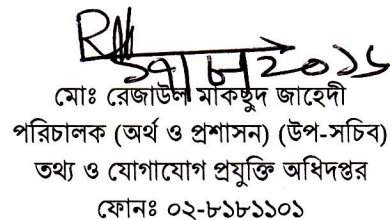 মোঃ রেজাউল মাকছুদ জাহেদী
পরিচালক (অর্থ ও প্রশাসন) (উপ-সচিব)
তথ্য ও যোগাযোগ প্রযুক্তি অধিদপ্তর
ফোনঃ ০২-৮১৮১১০১